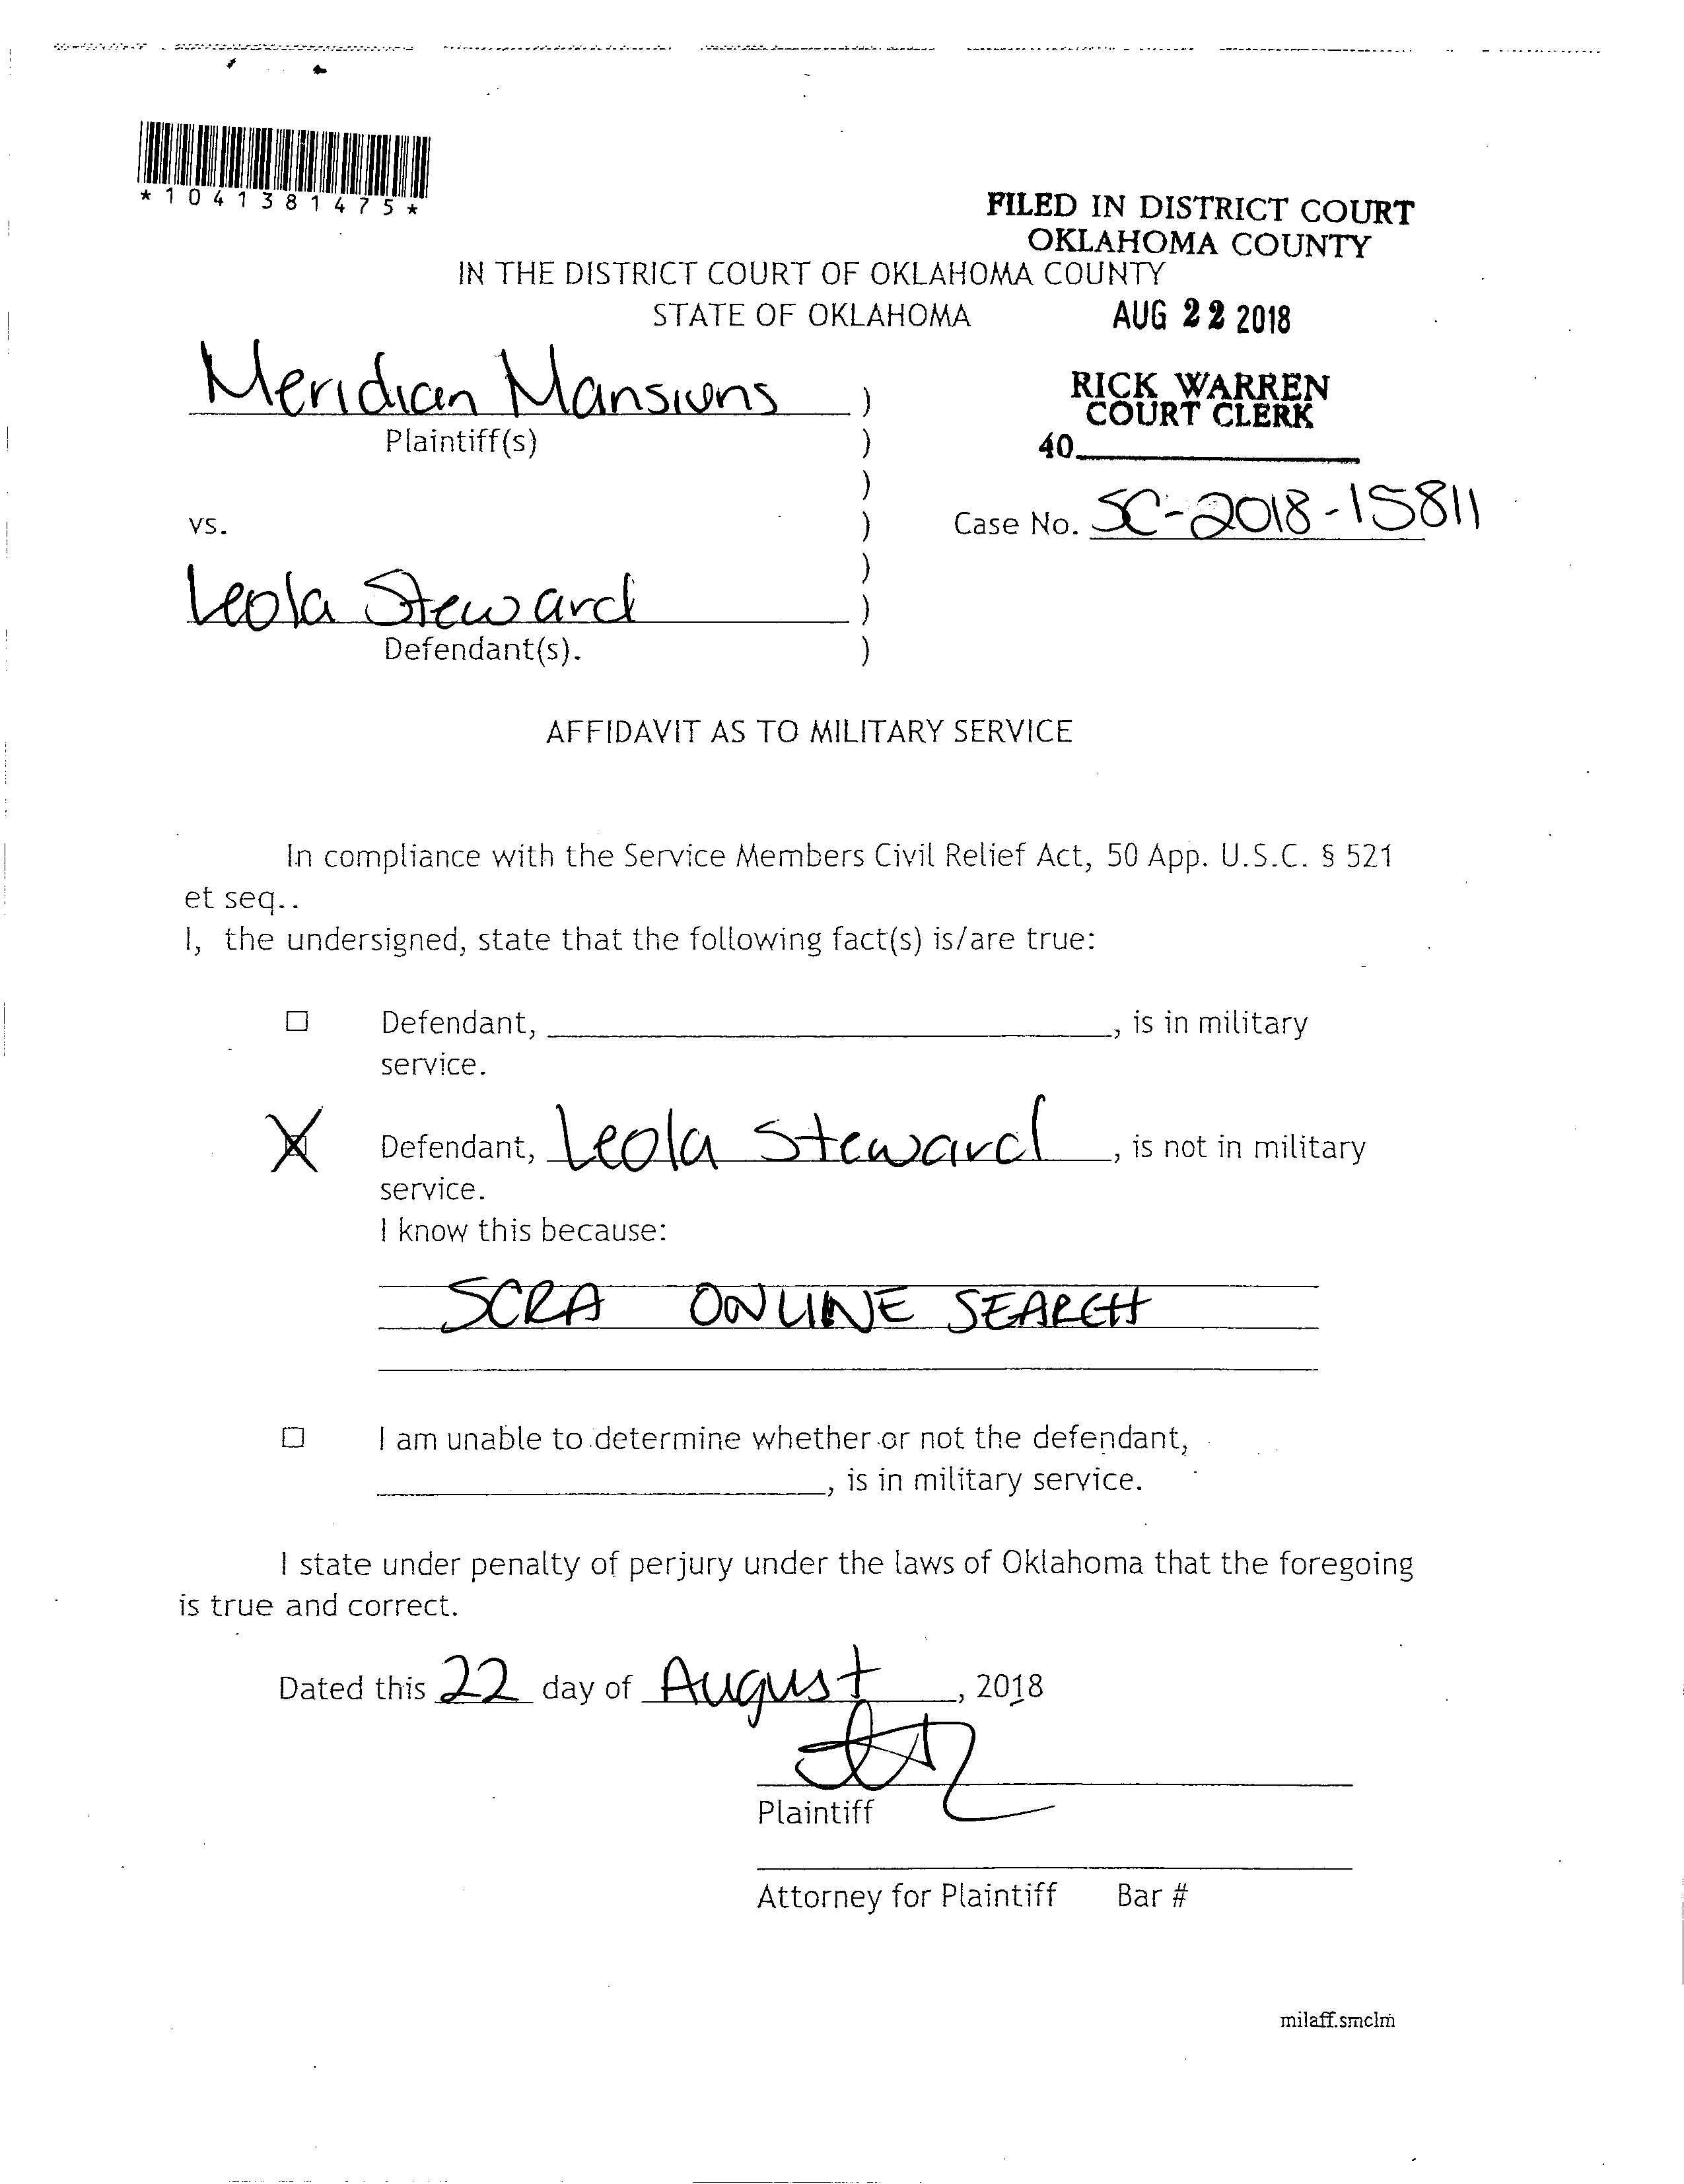 *1041381475*
FILED IN DISTRICT COURT
OKLAHOMA COUNTY
IN THE DISTRICT COURT OF OKLAHOMA COUNTY
STATE OF OKLAHOMA
AUG 22 2018
Meridian Mansions )
RICK WARREN
COURT CLERK
Plaintiff(s) )
40
)
vs. )
Case No. SC-2018-15811
)
Leola Steward )
Defendant(s). )
AFFIDAVIT AS TO MILITARY SERVICE
In compliance with the Service Members Civil Relief Act, 50 App. U.S.C. § 521
et seq..
I, the undersigned, state that the following fact(s) is/are true:
☐ Defendant, , is in military
service.
X Defendant, Leola Steward , is not in military
service.
I know this because:
SCRA ONLINE SEARCH
☐ I am unable to determine whether or not the defendant,
, is in military service.
I state under penalty of perjury under the laws of Oklahoma that the foregoing
is true and correct.
Dated this 22 day of August , 2018
Plaintiff
Attorney for Plaintiff Bar #
milaff.smclm